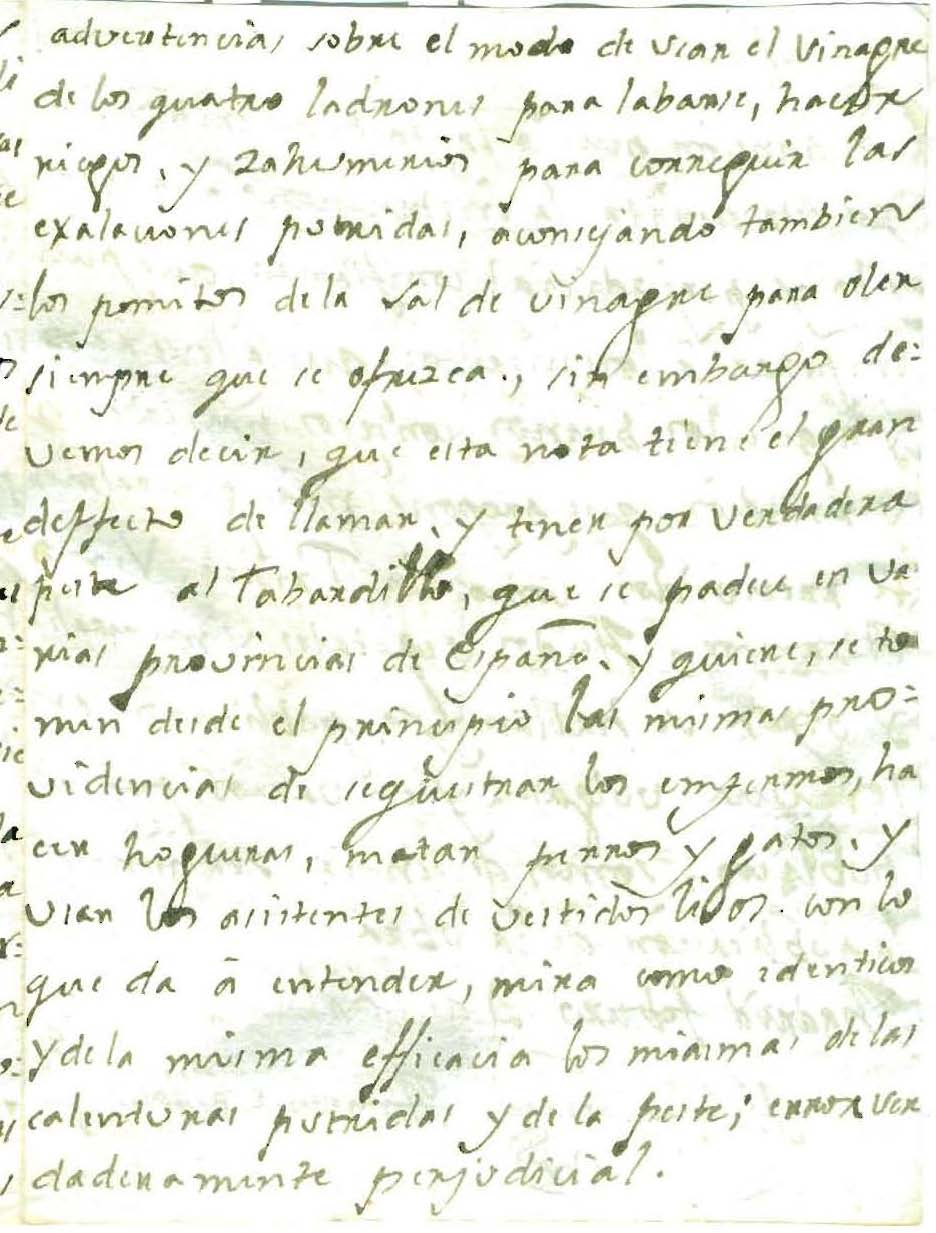 advertencias sobre el modo de usar el Vinagre
de los quatro ladrones para labarse, hacer
riegos, y zahumerios para corregir las
exalaciones potridas, aconsejando tambien
los pomitos dela sal de vinagre para oler
siempre que se ofrezca., sin embargo de=
vemos decir, que esta nota tiene el gran
deffecto de llamar, y tener por verdadera
peste al Tabardillo, que se padece en va
rias provincias de España, y quiere, se to
men desde el principio las mismas pro=
videncias de seqüestrar los emfermos, ha
cer hogueras, matar perros y gatos, y
usar los asistentes de vestidos lisos. con lo
que da â entender, mira como identicos
y dela misma efficacia los miasmas de las
calenturas putridas y de la peste; error ver
daderamente perjudicial.